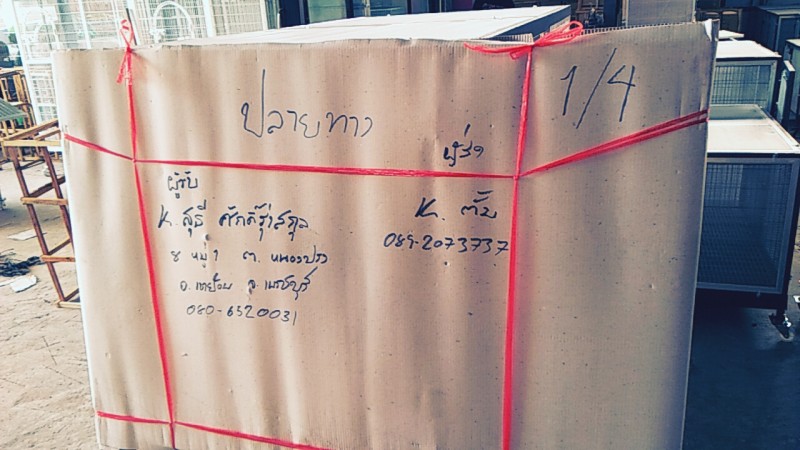 ปลายทาง
1/4
ผู้รับ
K. สุธี
8 หมู่ 1 ต. หนองปรง
อ. เขาย้อย จ. เพชรบุรี
080-6520031
ผู้ส่ง
K. ตั้ม
089-2073737